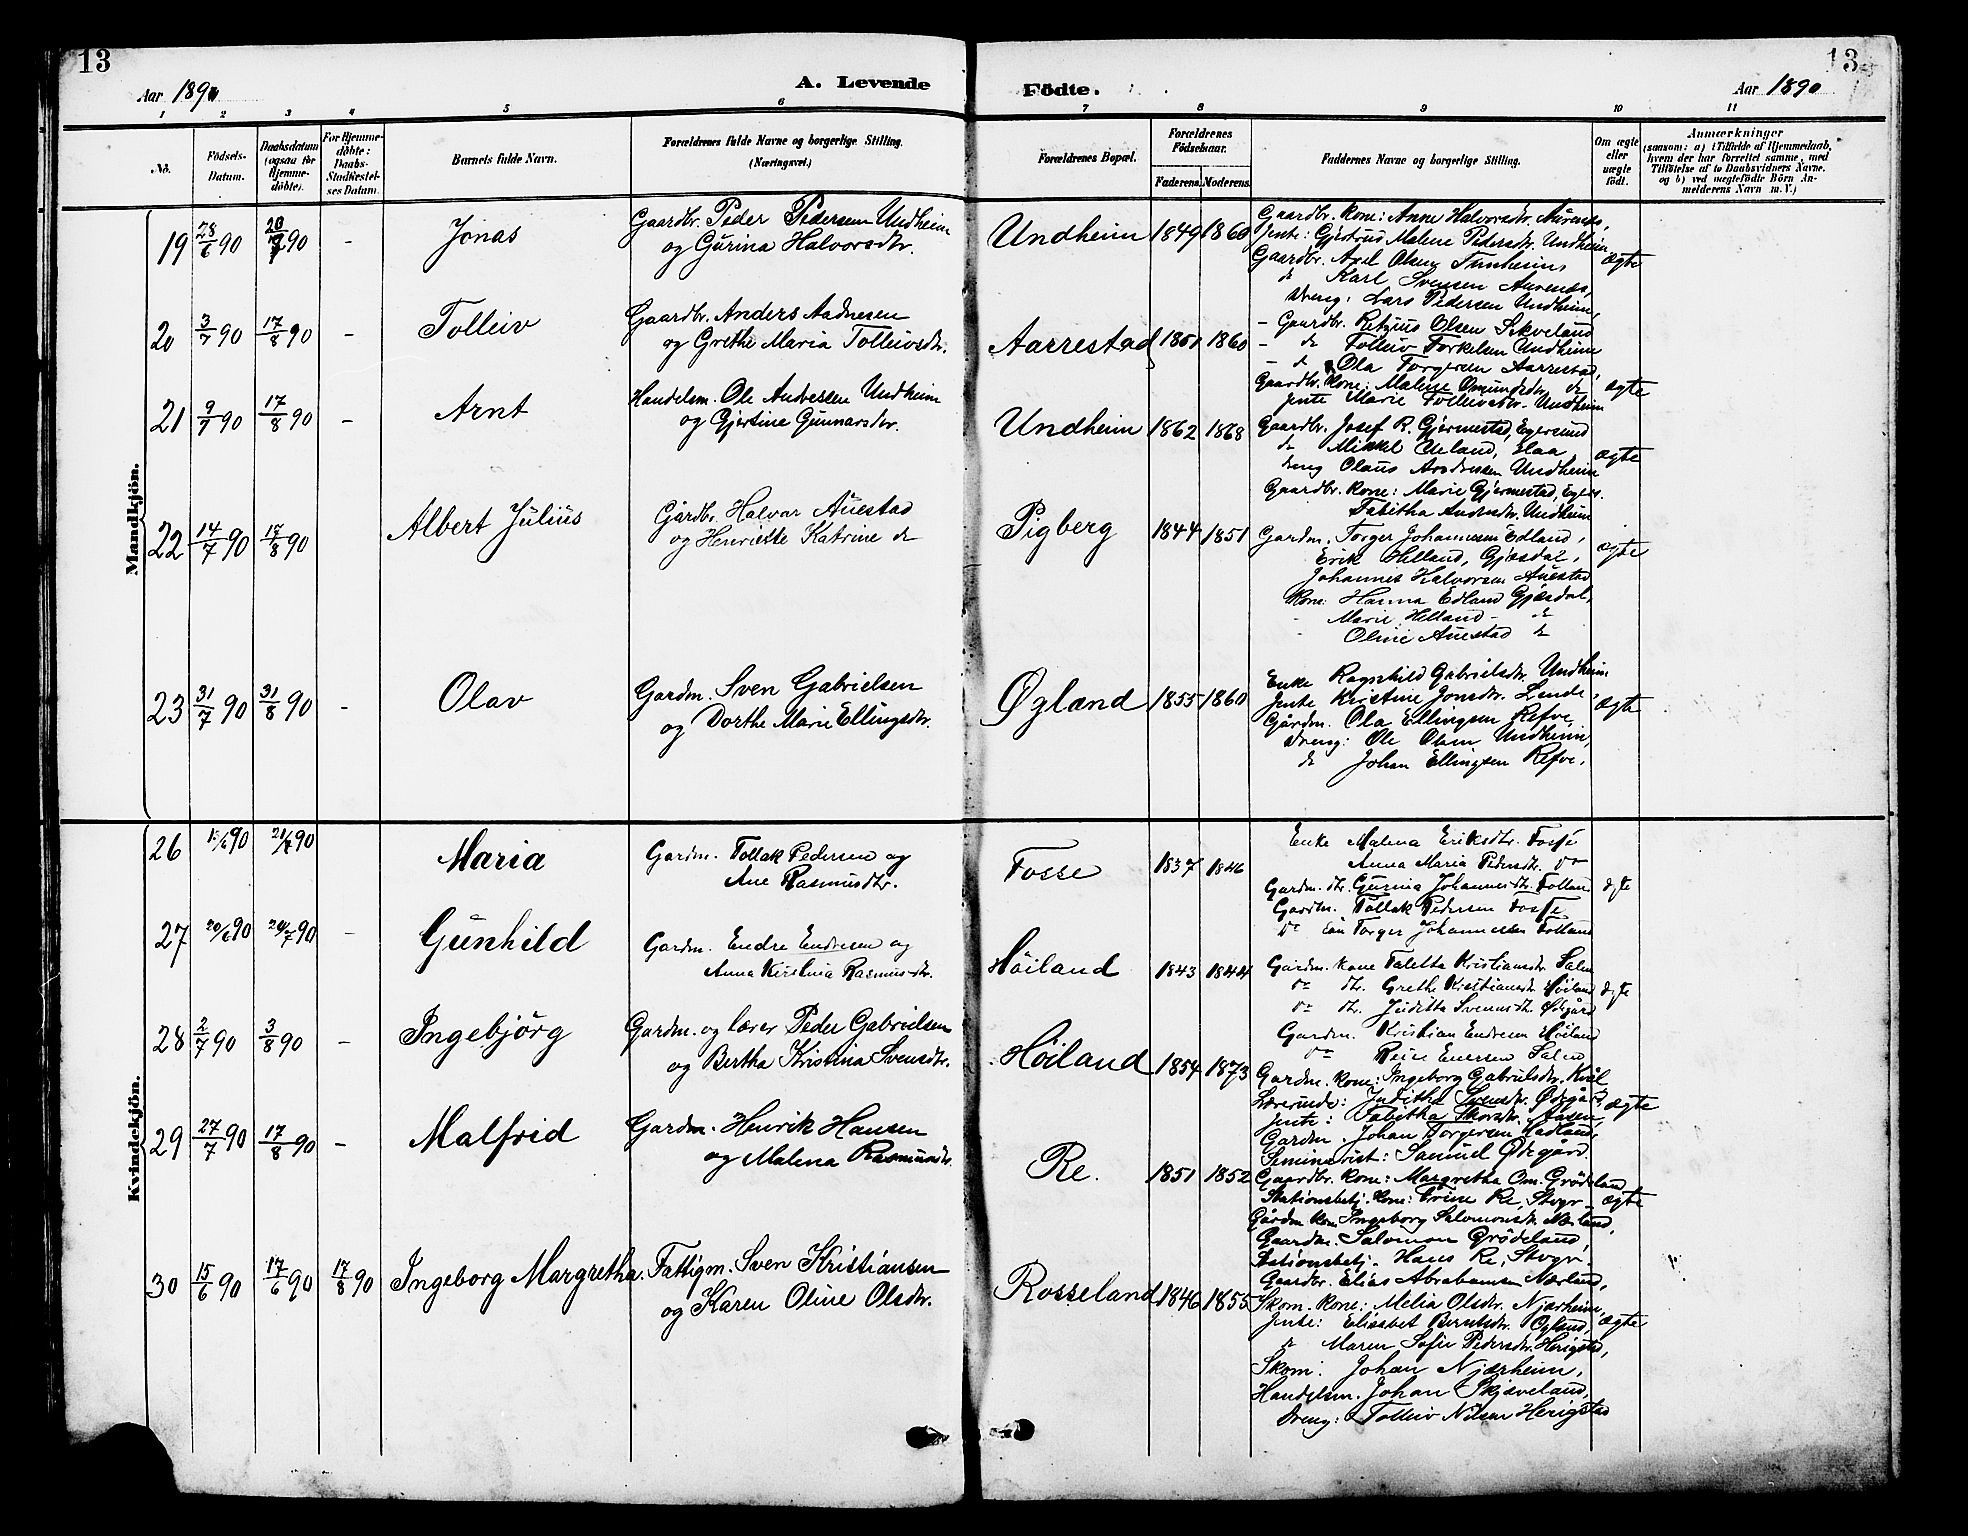 13
13
Aar 1890
A. Levende
Födte.
Aar 1890
1 2 3 4 5 6 7 8 9 10 11
No.
Födsels-Datum.
Daabsdatum (ogsaa for Hjemmedöbte).
For Hjemmedöbte: Daabs-Stadfæstelses Datum.
Barnets fulde Navn.
Forældrenes fulde Navne og borgerlige Stilling. (Næringsvei.)
Forældrenes Bopæl.
Forældrenes Födselsaar.
Faderens. Moderens.
Faddernes Navne og borgerlige Stilling.
Om ægte eller uægte födt.
Anmærkninger
(saasom: a) i Tilfælde af Hjemmedaab, hvem der har forrettet samme, med Tilföielse af to Daabsvidners Navne, og b) ved uægtefödte Börn Anmelderens Navn m. V.)
Mandkjön.
19 28/6 90 20/7 90 - Jonas
Gaardbr. Peder Pedersen Undheim
og Gurina Halvorsdtr.
Undheim 1849 1860
Gaardbr. kone: Anne Halvorsdtr. Aurenæs,
Jente: Gjertrud Malene Pedersdtr. Undheim
Gaardbr. Axel Olsen Tunheim,
do Karl Svensen Aurenæs,
Dreng: Lars Pedersen Undheim,
ægte
20 3/7 90 17/8 90 - Tolleiv
Gaardbr. Anders Aadnesen
og Grethe Maria Tolleivsdtr.
Aarrestad 1851 1860
- Gaardbr. Retzius Olsen Sikveland
- do Tolleiv Torkelsen Undheim
- do Ola Torgersen Aarrestad,
Gaardbr. kone: Malene Omundsdtr. do
Jente Marie Tolleivsdtr. Undheim
ægte
21 9/7 90 17/8 90 - Arnt
Handelsm. Ole Andressen Undheim
og Gjertine Gunnarsdtr.
Undheim 1862 1868
Gaardbr. Josef R. Gjermestad, Egersund
do Mikkel Ueland, Elaa
dreng Olaus Andressen Undheim
Gaardbr. kone: Marie Gjermestad, Egers.
Tabitha Andersdtr. Undheim
ægte
22 14/7 90 17/8 90 Albert Julius
Gårdbr. Halvar Auestad
og Henriette Katrine do
Pigberg 1844 1851
Gardm. Torger Johannesen Edland,
Erik Helland, Gjæsdal,
Johannes Halvorsen Auestad
Kone: Hanna Edland Gjæsdal,
- Marie Helland - do
Oline Auestad do
ægte
23 31/7 90 31/8 90 - Olav
Gardm. Sven Gabrielsen
og Dorthe Marie Ellingsdtr.
Øgland 1855 1860
Enke Ragnhild Gabrielsdtr. Undheim
Jente Kristine Jonsdtr. Lende,
Gårdm. Ola Ellingsen Refve,
Dreng: Ole Olsen Undheim,
do Johan Ellingsen Refve,
ægte
Kvindekjön.
26 90 21/7 90 Maria
Gardm. Tollak Pedersen og
Ane Rasmusdtr.
Fosse 1837 1846
Enke Malena Eriksdtr. Fosse
Anna Maria Pedersdtr. do
Gardm. dtr. Gurina Johannesdtr. Folland
Gardm. Tollak Pedersen Fosse
do Torger Johannessen Folland
ægte
27 20/6 90 20/7 90 - Gunhild
Gardm. Endre Endresen og
Anna Kirstina Rasmusdtr.
Höiland 1843 1844
Gardm. kone Taletta Kristiansdtr. Salen
do dtr. Grethe Kristiansdtr. Höiland
do dtr. Juditta Svensdtr. Ødegård
Gardm. Kristian Endresen Höiland
do Reier Enersen Salen
ægte
28 2/7 90 3/8 90 - Ingebjörg
Gardm. og lærer Peder Gabrielsen
og Bertha Kristina Svensdtr.
Höiland 1854 1873
Gardm. kone: Ingeborg Gabrielsdtr. Kvål
Lærerinde: Juditha Svensdtr. Ødegård,
Jente: Tabitha Thorsdtr. Aasen,
Gardm. Johan Torgersen Hadland,
Seminarist: Samuel Ødegård.
ægte
29 27/7 90 17/8 90 - Malfrid
Gardm. Henrik Hansen
og Malena Rasmusdtr.
Re. 1851 1852
Gaardbr. kone: Margretha Om. Grödeland
Stationsbetj. kone: Trine Re, Stvgr.
Gårdm kone Ingeborg Salomonsdtr. Nærland,
Gaardm. Salomon Grödeland,
Stationsbetj. Hans Re, Stvgr.
Gaardbr. Elias Abrahamsen Nærland,
ægte
30 15/6 90 17/6 90 17/8 90 Ingeborg Margretha.
Fattigm. Sven Kristiansen
og Karen Oline Olsdtr.
Rosseland 1846 1855
Skom. kone: Melia Olsdtr. Njærheim,
Jente: Elisabet Berntsdtr. Øgland,
do Maren Sofie Pedersdtr. Herigstad,
Skom: Johan Njærheim,
Handelsm. Johan Skjæveland,
Dreng: Tolleiv Nilsen Herigstad
ægte